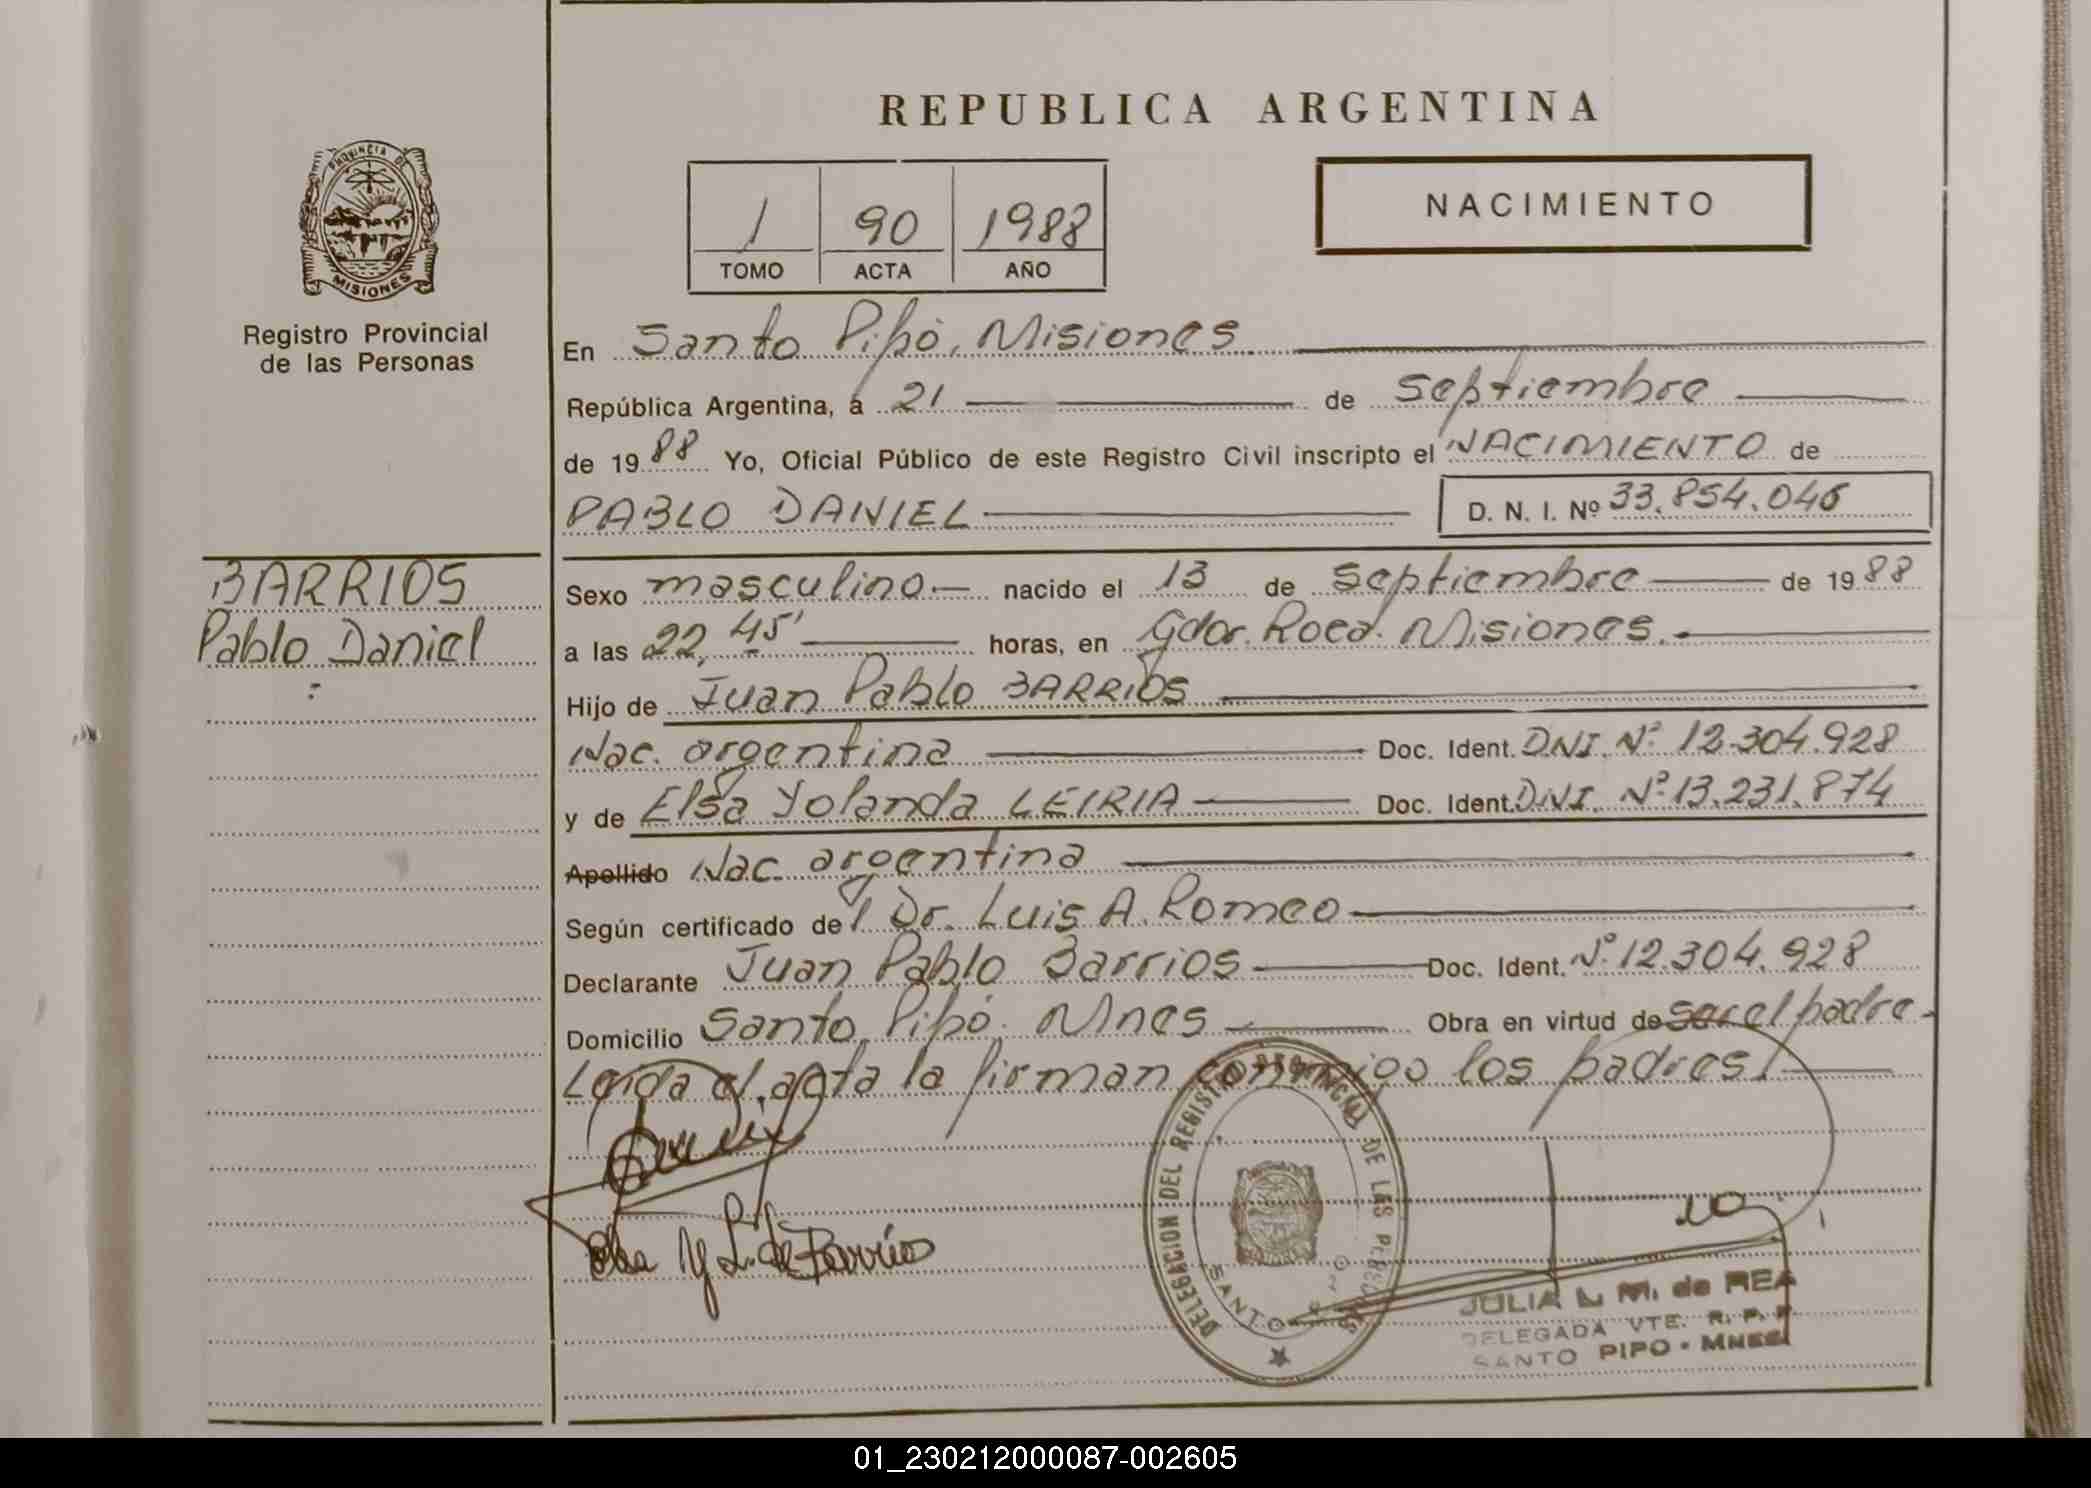 REPUBLICA ARGENTINA
PROVINCIA DE
MISIONES
Registro Provincial
de las Personas
1 90 1988
TOMO ACTA AÑO
NACIMIENTO
En Santo Pipó, Misiones
República Argentina, a 21 de Septiembre
de 1988 Yo, Oficial Público de este Registro Civil inscripto el NACIMIENTO de
PABLO DANIEL D. N. I. Nº 33.854.046
BARRIOS
Pablo Daniel
Sexo masculino nacido el 13 de Septiembre de 1988
a las 22,45' horas, en Gdor. Roca. Misiones.
Hijo de Juan Pablo BARRIOS
Nac. argentina Doc. Ident. DNI. Nº 12.304.928
y de Elsa Yolanda LEIRIA Doc. Ident. DNI. Nº 13.231.874
Apellido Nac. argentina
Según certificado del Dr. Luis A. Romeo
Declarante Juan Pablo Barrios Doc. Ident. Nº 12.304.928
Domicilio Santo Pipó. Mnes Obra en virtud de ser el padre
Leída el acta la firman conmigo los padres
Elsa Y L. de Barrios
DELEGACION DEL REGISTRO PROVINCIAL DE LAS PERSONAS
SANTO
JULIA L. M. de REA
DELEGADA VTE. R. P. P.
SANTO PIPO - MNES
01_230212000087-002605